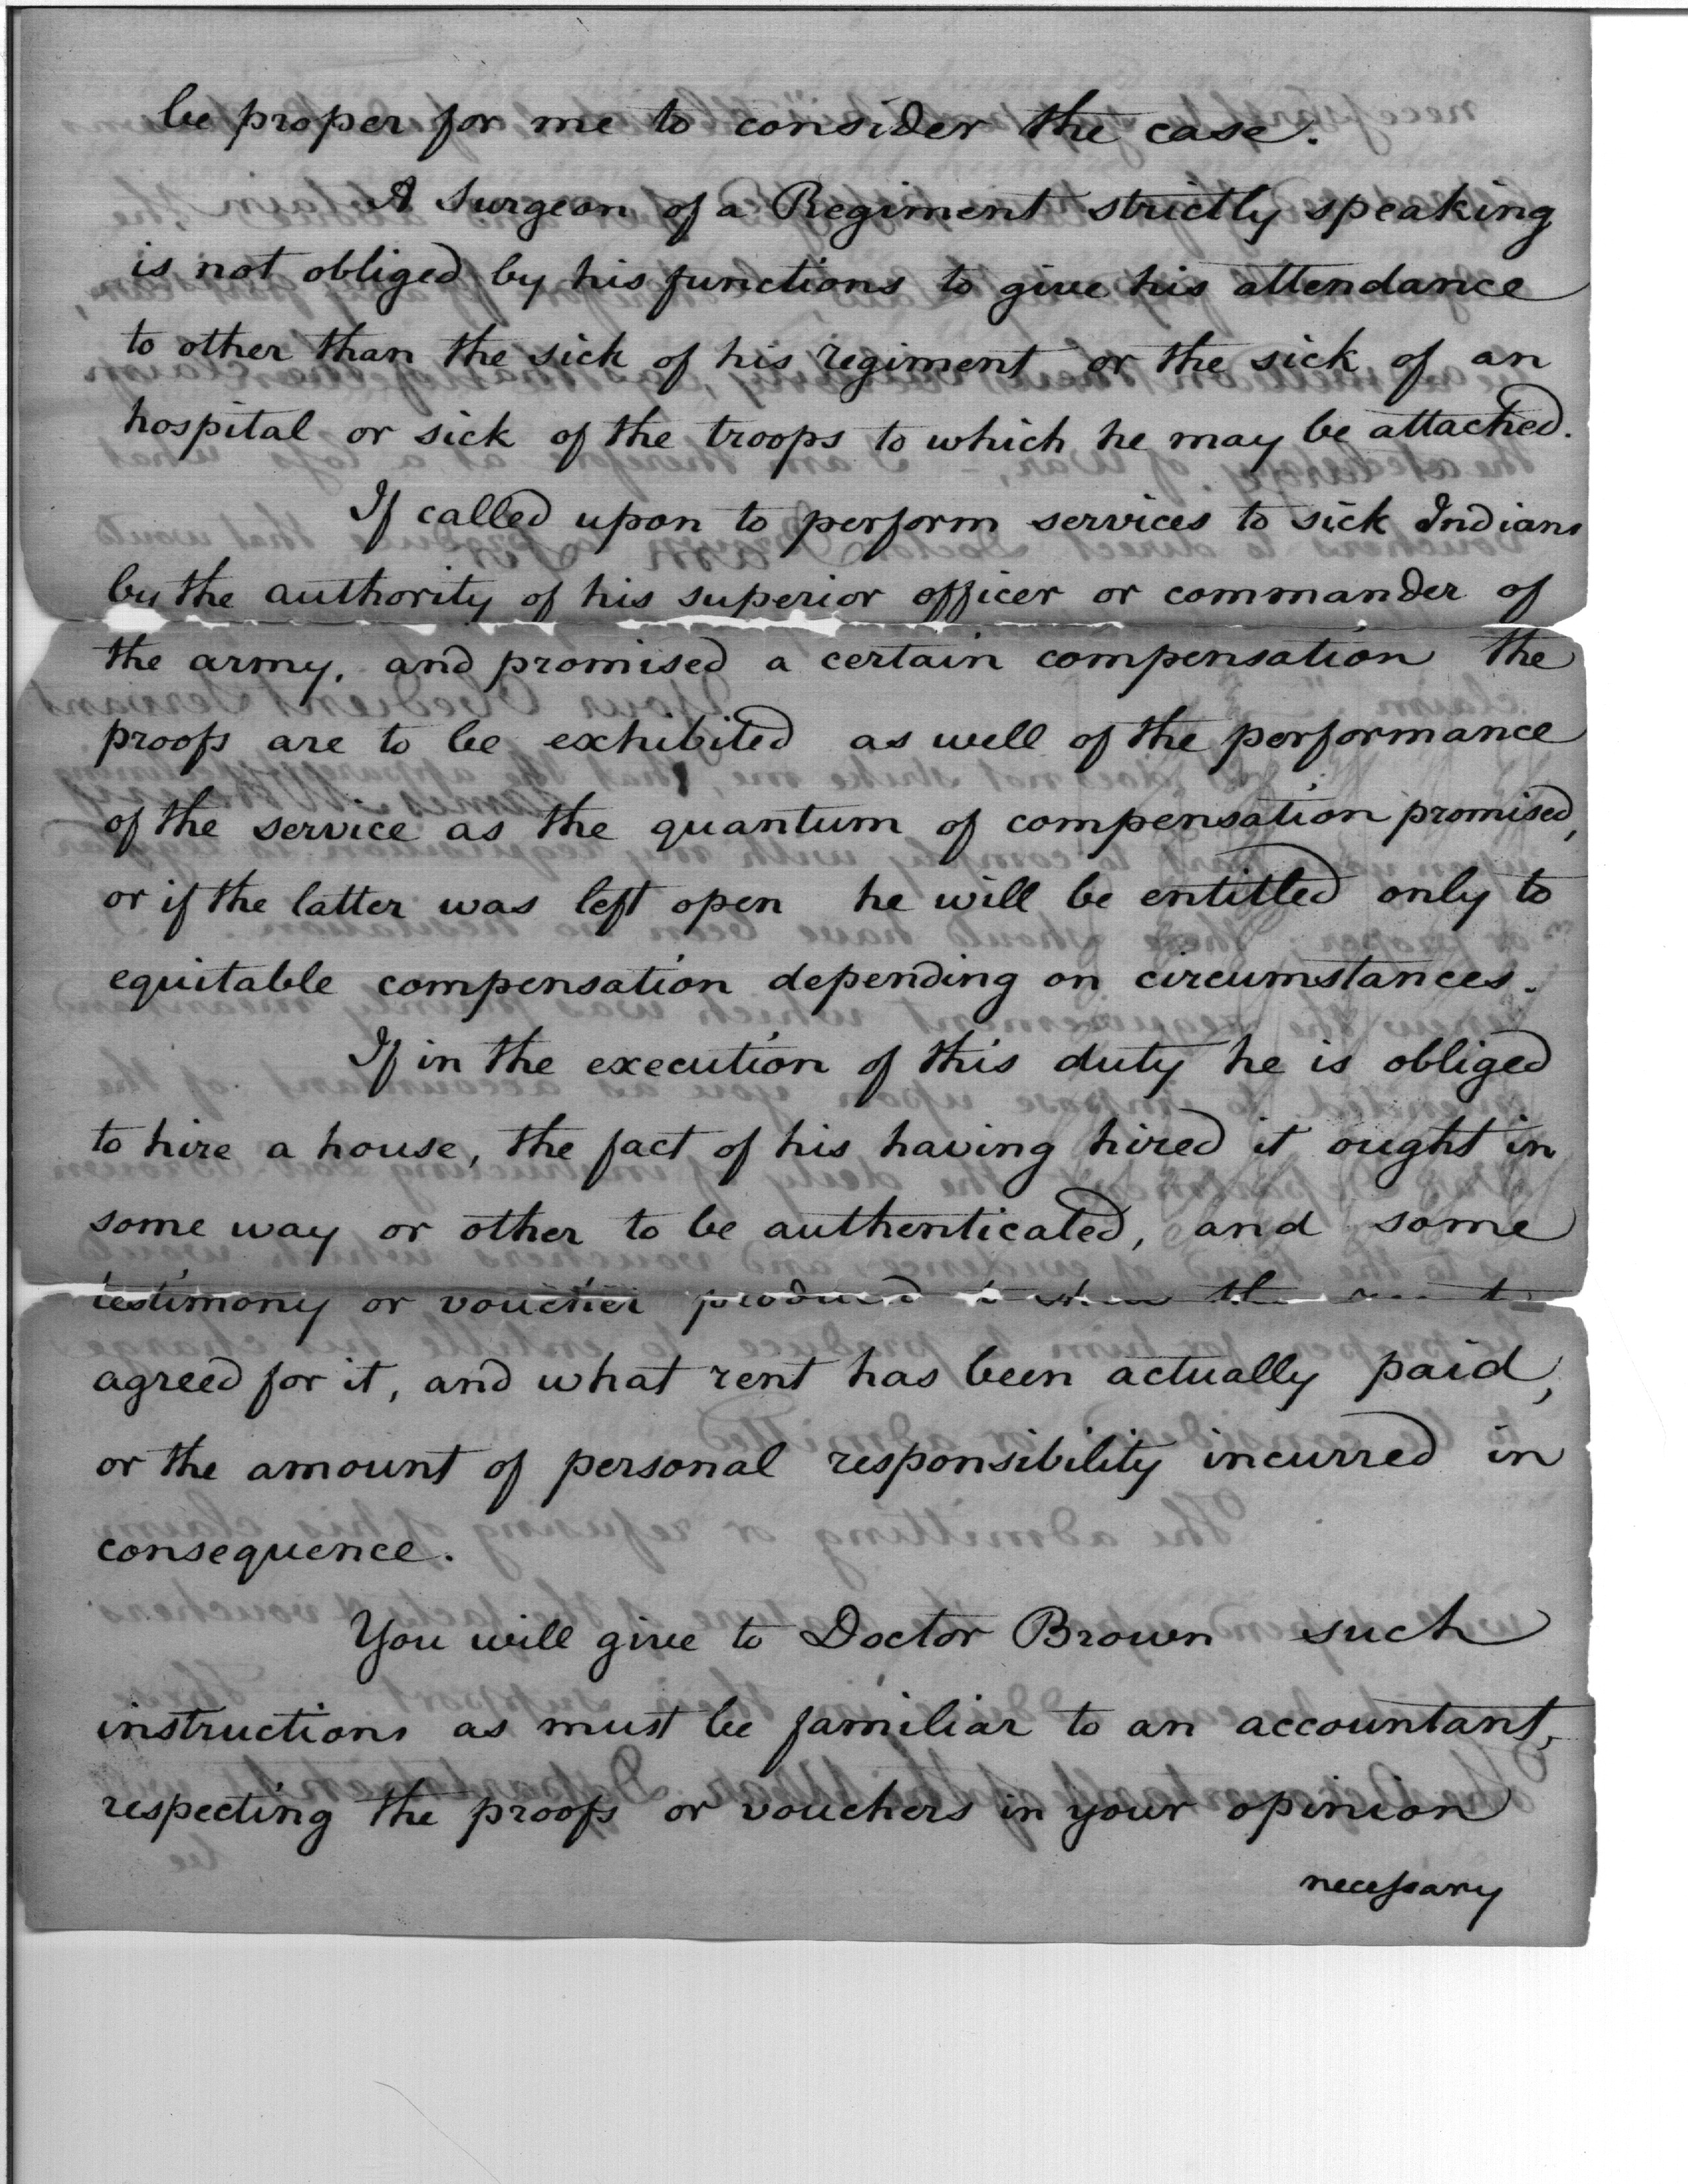 be proper for me to consider the case.
A Surgeon of a Regiment strictly speaking
is not obliged by his functions to give his attendance
to other than the sick of his regiment or the sick of an
hospital or sick of the troops to which he may be attached.
If called upon to perform services to sick Indians
by the authority of his superior officer or commander of
the army, and promised a certain compensation the
proofs are to be exhibited as well of the performance
of the service as the quantum of compensation promised,
or if the latter was left open he will be entitled only to
equitable compensation depending on circumstances.
If in the execution of this duty he is obliged
to hire a house, the fact of his having hired it ought in
some way or other to be authenticated, and some
testimony or voucher produced to shew the rent
agreed for it, and what rent has been actually paid,
or the amount of personal responsibility incurred in
consequence.
You will give to Doctor Brown such
instructions as must be familiar to an accountant,
respecting the proofs or vouchers in your opinion
necessary